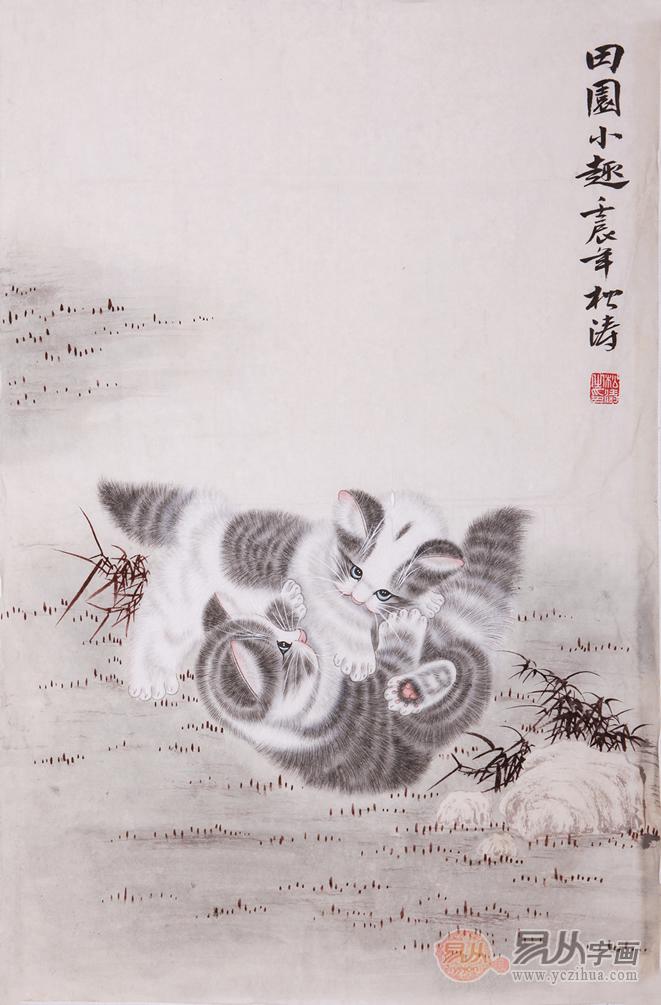 田園小趣壬辰年松涛
易从
易从字画
www.yczihua.com